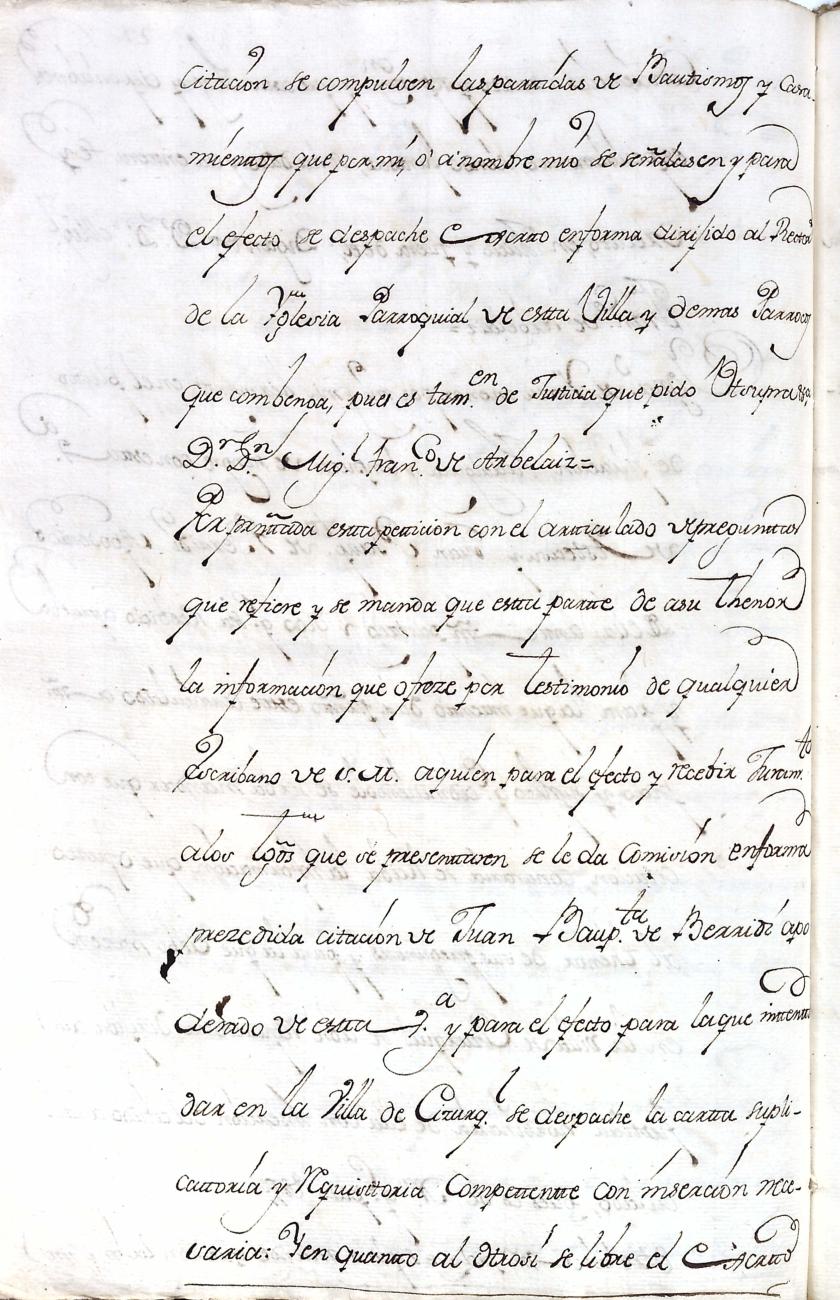 Citación se compulsen las parttidas de Bautismos y Casa-
mienttos que por mi, ó á nombre mio se señalasen y para
el efecto se despache Exsortto en forma dirijido al Rector
de la Yglesia Parroquial de estta Villa y demas Parrocos
que combenga, pues es tam.en de Justicia que pido Utsupra
D.r D.n Mig.l Fran.co de Arbelaiz=
Por presenttada estta petticion con el artticulado de pregunttas
que refiere y se manda que estta partte de a su thenor
la información que ofreze por testimonio de qualquier
Escribano de S.M. a quien para el efecto y recebir Juram.to
a los tgos que se presenttaren se le da Comisión en forma
prezedida citación de Juan Baup.ta de Berridi apo
derado de estta V.a y para el efecto para la que intentta
dar en la Villa de Cizurq.l se despache la cartta supli-
cattoría y Requisittoria Compettentte con inserción nece-
saria: Y en quantto al Otrosi se libre el Exsortto